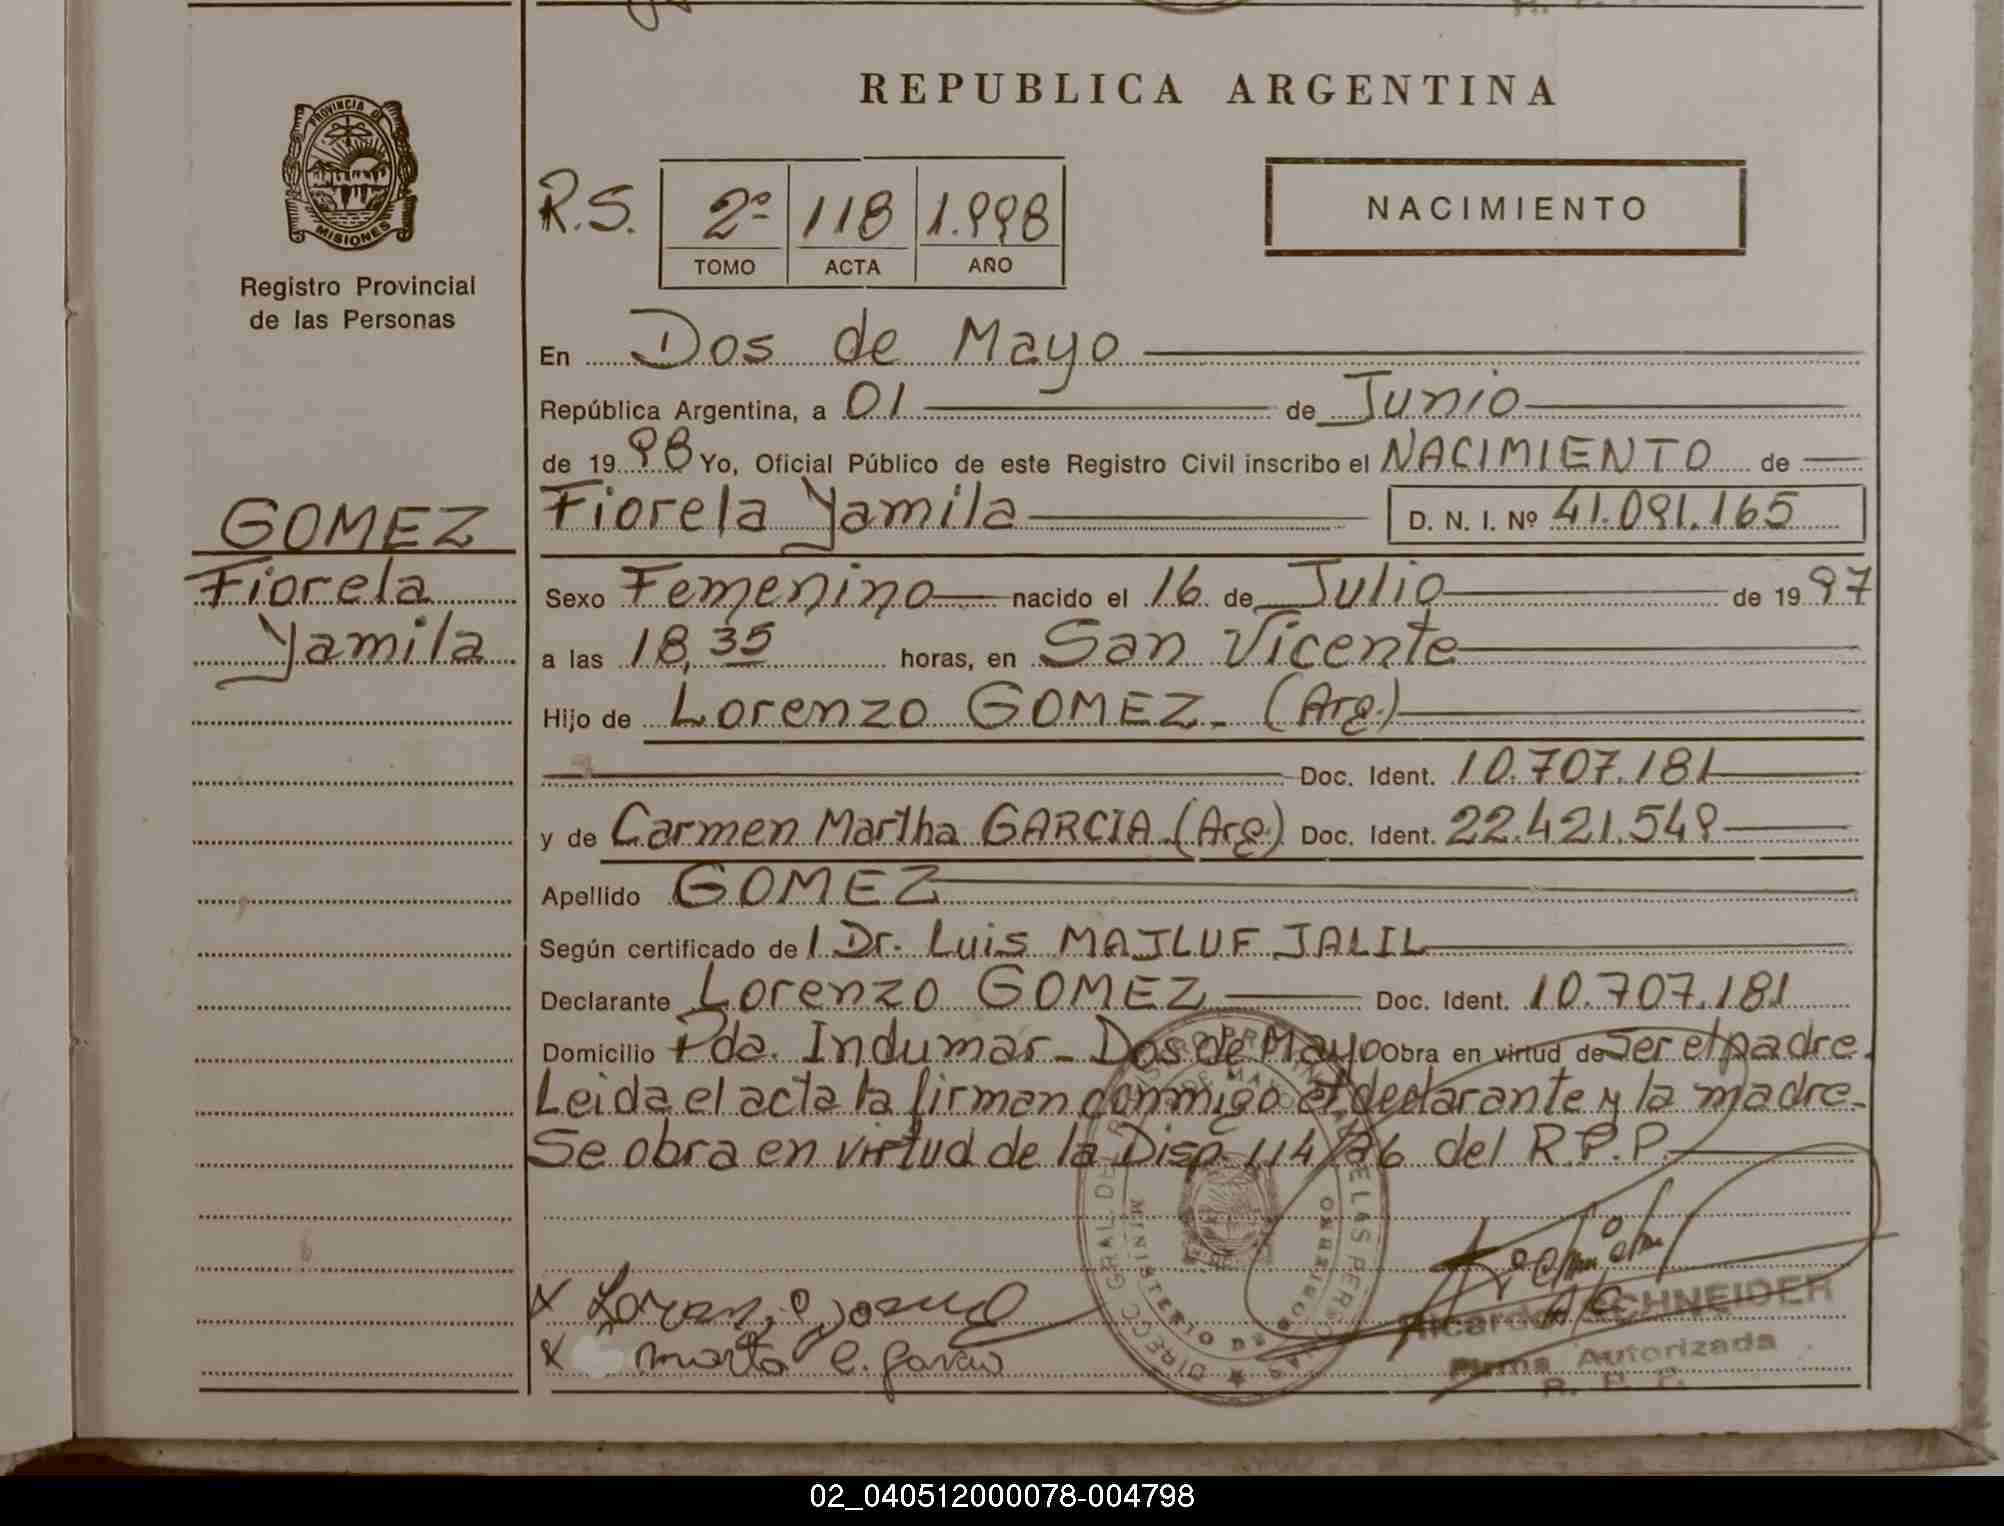 REPUBLICA ARGENTINA
PROVINCIA DE
MISIONES
Registro Provincial
de las Personas
R.S. 2º 118 1.998
TOMO ACTA AÑO
NACIMIENTO
En Dos de Mayo
República Argentina, a 01 de Junio
de 19 98 Yo, Oficial Público de este Registro Civil inscribo el NACIMIENTO de
Fiorela Yamila D. N. I. Nº 41.091.165
GOMEZ
Fiorela
Yamila
Sexo Femenino nacido el 16 de Julio de 19 97
a las 18,35 horas, en San Vicente
Hijo de Lorenzo GOMEZ. (Arg.)
Doc. Ident. 10.707.181
y de Carmen Martha GARCIA.(Arg.) Doc. Ident. 22.421.549
Apellido GOMEZ
Según certificado de l Dr. Luis MAJLUF JALIL
Declarante Lorenzo GOMEZ Doc. Ident. 10.707.181
Domicilio Pda. Indumar - Dos de Mayo Obra en virtud de Ser el padre.
Leida el acta la firman conmigo el declarante y la madre.
Se obra en virtud de la Disp. 114/26 del R.P.P.
Ricardo SCHNEIDER
Firma Autorizada
R. P. P.
marta C. garcia
02_040512000078-004798